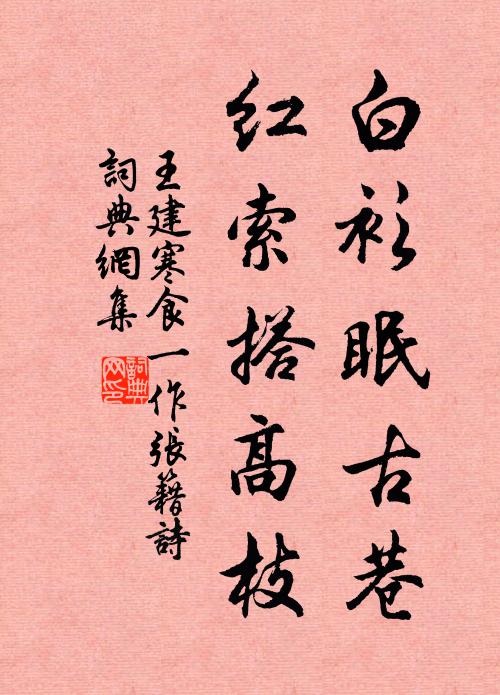 白衫眠古巷
紅索搭高枝
王建寒食一作張籍詩
詞典網集
詞典網印